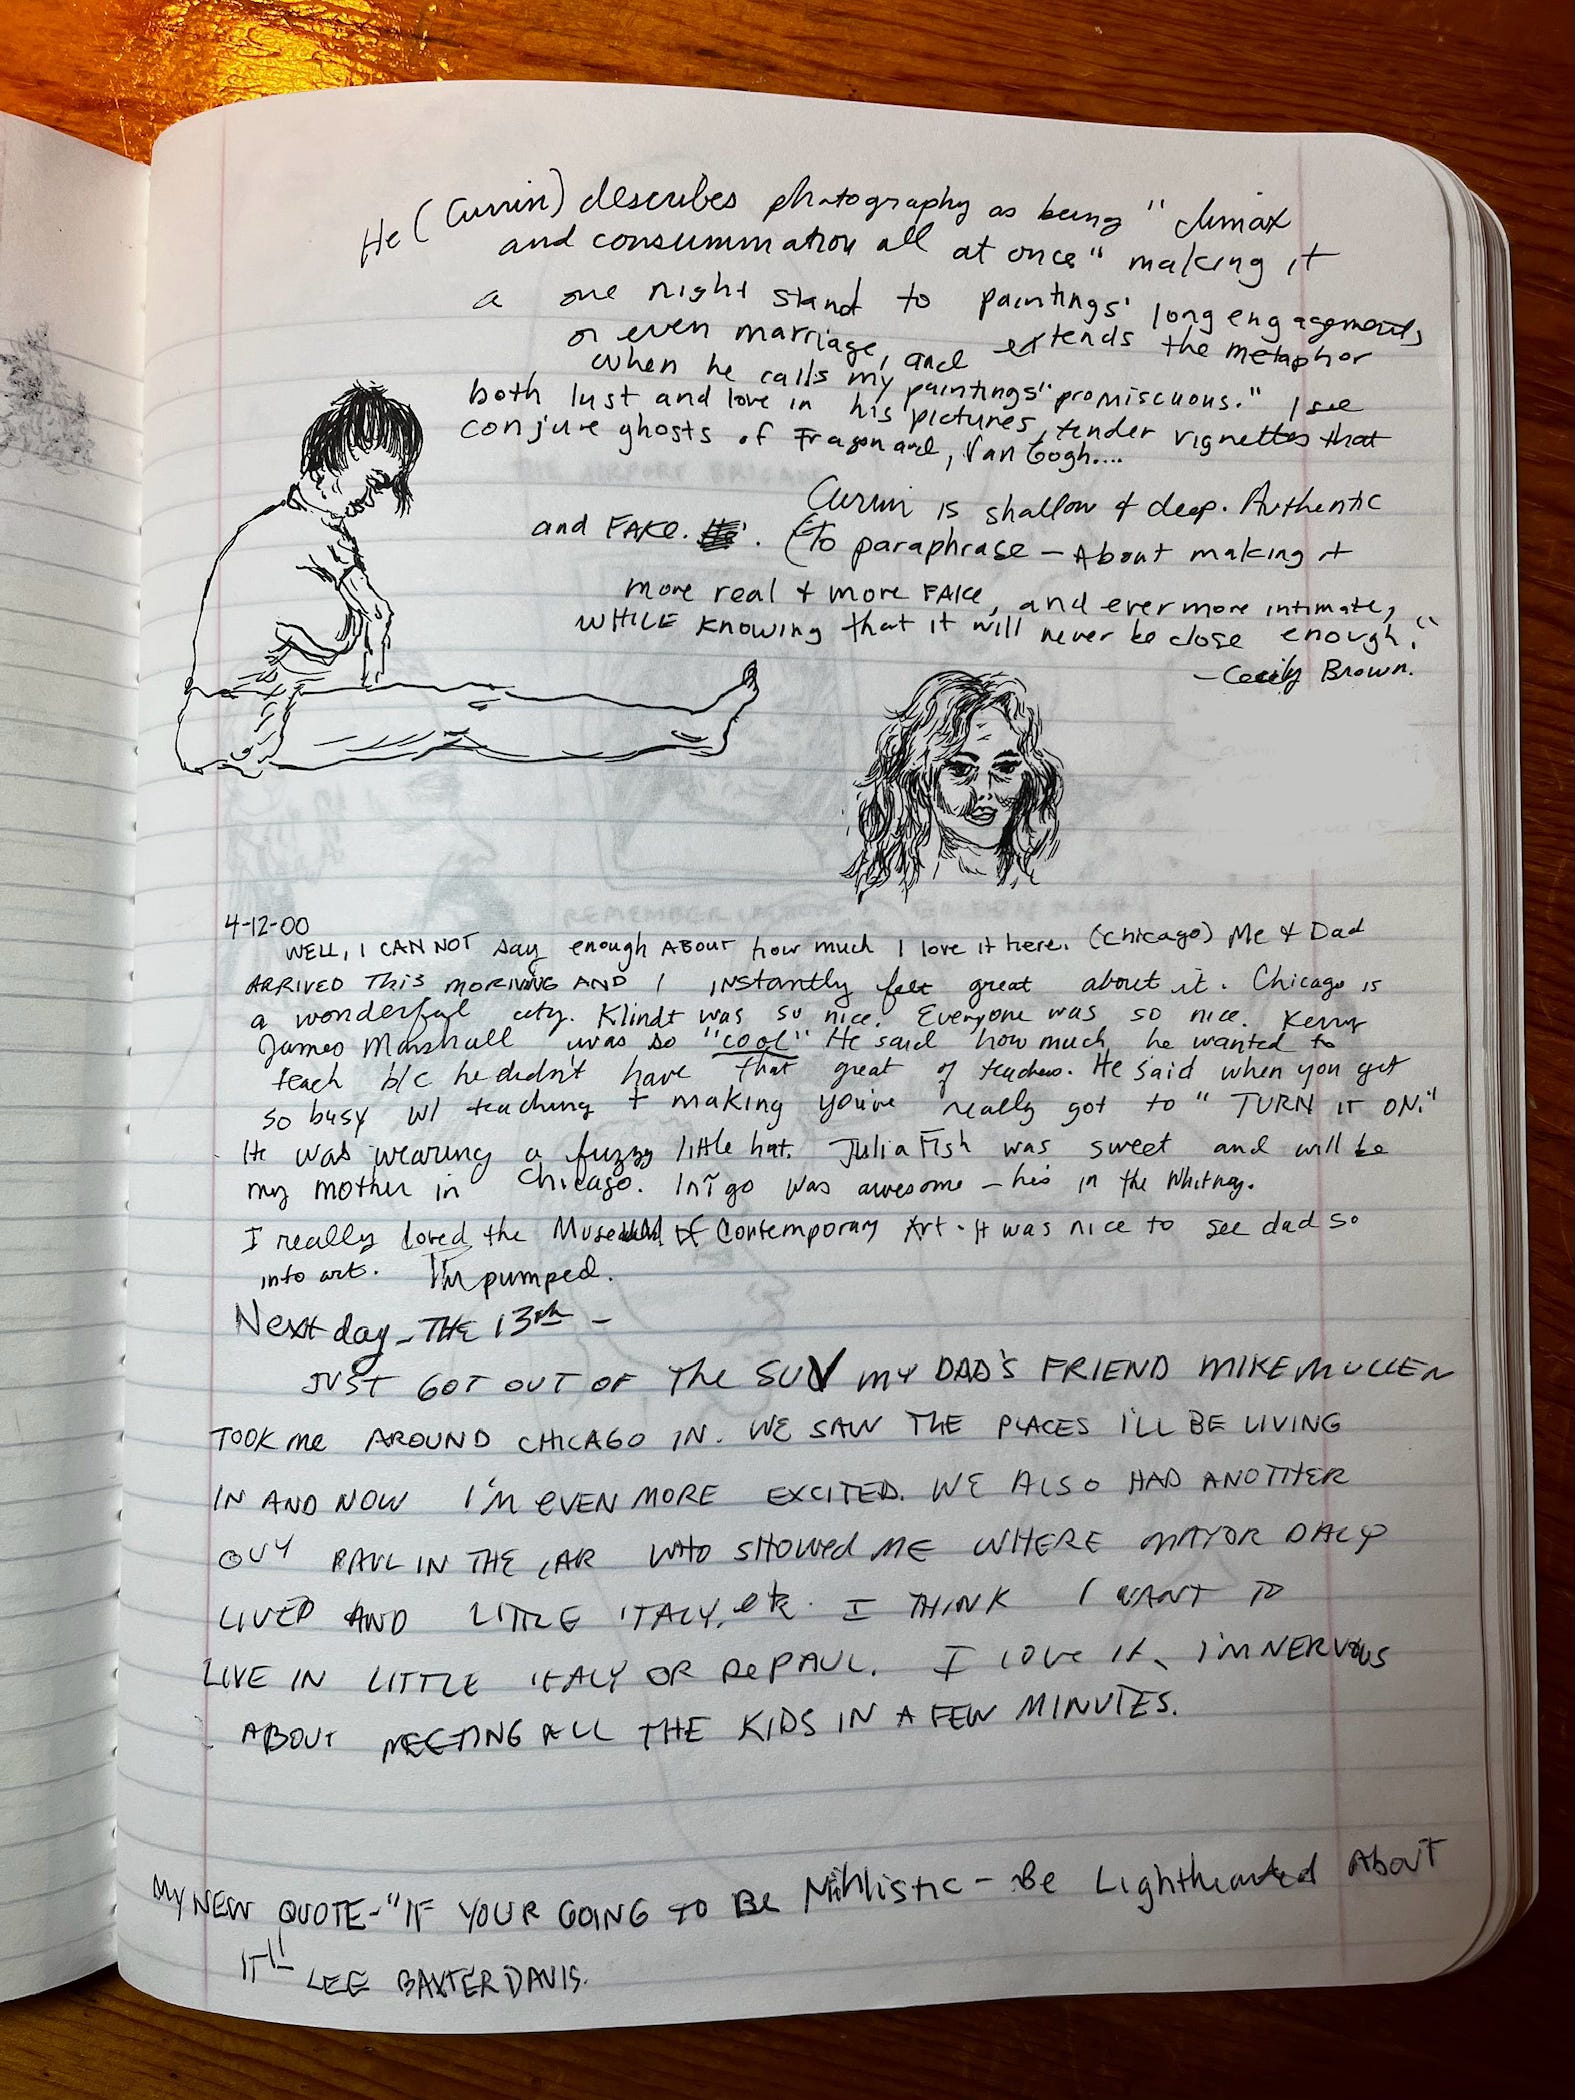 He (Currin) describes photography as being "climax
and consummation all at once" making it
a one night stand to paintings' long engagements,
or even marriage, and extends the metaphor
when he calls my paintings "promiscuous." I see
both lust and love in his pictures, tender vignettes that
conjure ghosts of Fragonard, Van Gogh....
Currin is shallow & deep. Authentic
and FAKE. (To paraphrase - About making it
more real & more FAKE, and ever more intimate,
WHILE KNOWING that it will never be close enough."
- Cecily Brown.
4-12-00
WELL, I CAN NOT say enough ABOUT how much I love it here. (Chicago) Me & Dad
ARRIVED THIS MORNING AND I INSTANTLY felt great about it. Chicago is
a wonderful city. Klindt was so nice. Everyone was so nice. Kerry
James Marshall was so "cool" He said how much he wanted to
teach b/c he didn't have that great of teachers. He said when you get
so busy w/ teaching & making you've really got to "TURN IT ON."
He was wearing a fuzzy little hat. Julia Fish was sweet and will be
my mother in Chicago. Iñigo was awesome - his in the Whitney.
I really loved the Museum of Contemporary Art. It was nice to see dad so
into art. I'm pumped.
Next day - THE 13th -
JUST GOT OUT OF The SUV MY DAD'S FRIEND MIKE MULLEN
TOOK me AROUND CHICAGO IN. WE SAW THE PLACES I'LL BE LIVING
IN AND NOW I'M EVEN MORE EXCITED. WE ALSO HAD ANOTHER
GUY PAUL IN THE CAR WHO SHOWED ME WHERE MAYOR DALY
LIVED AND LITTLE ITALY, etc. I THINK I WANT TO
LIVE IN LITTLE ITALY OR DePAUL. I LOVE It, I'M NERVOUS
ABOUT MEETING ALL THE KIDS IN A FEW MINUTES.
MY NEW QUOTE - "IF YOUR GOING TO BE Nihlistic - Be Lighthearted About
IT" LEE BAXTER DAVIS.